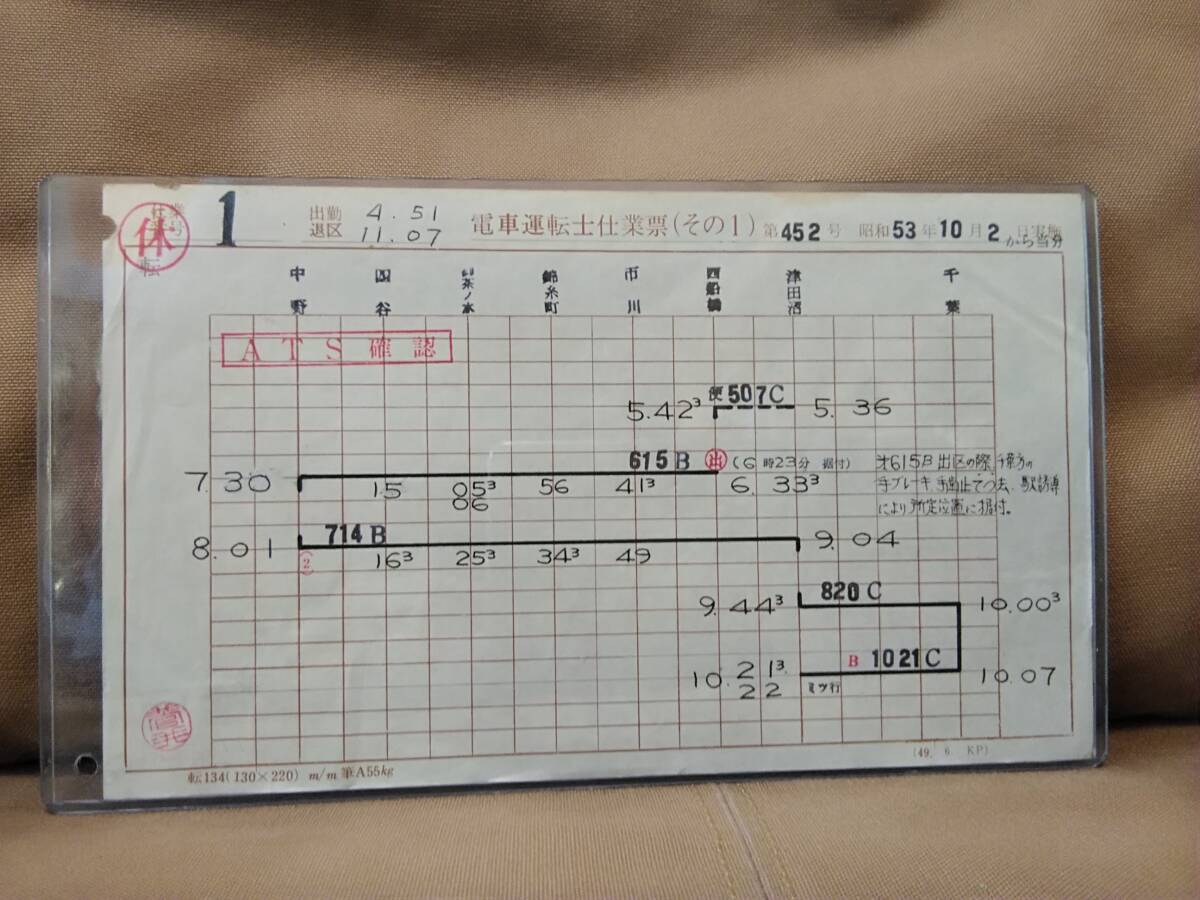 休
転
1
出勤 4.51
退区 11.07
電車運転士仕業票(その1) 第452号 昭和53年10月2日実施
から当分
中野 四谷 御茶ノ水 錦糸町 市川 西船橋 津田沼 千葉
ATS確認
便 507C
5.42³ 5.36
615B 出 (6時23分 据付)
7.30 15 05³ 56 41³ 6.33³
06
オ615B出区の際、千葉方の
手ブレーキ、手歯止てつ去、駅誘導
により所定位置に据付。
714B
8.01 (2) 16³ 25³ 34³ 49 9.04
820C
9.44³ 10.00³
B 1021C
10.21³ ミツ行 10.07
22
転134(130×220) m/m 筆A55kg
(49. 6 KP)